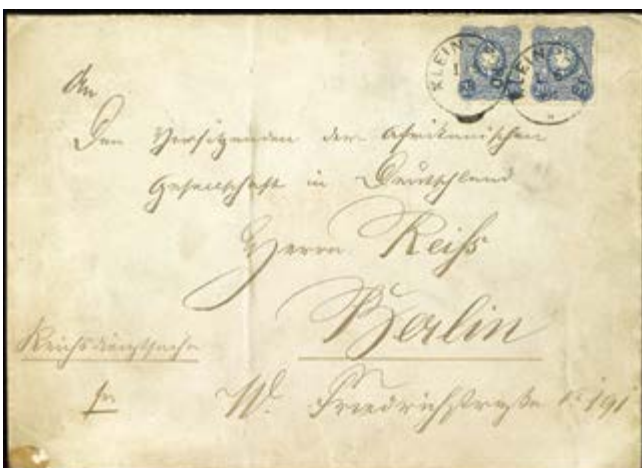 KLEIN-
KLEIN-
An
Den Vorsitzenden der Afrikanischen
Gesellschaft in Deutschland
Herrn Reiß
Berlin
fr.
W. Friedrichstraße No 191